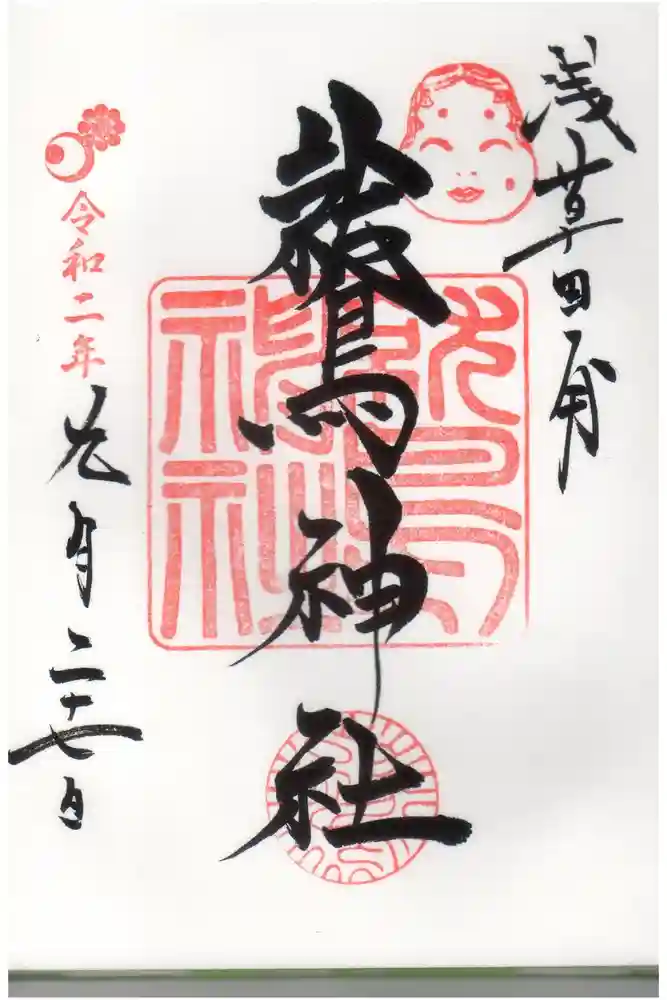 浅草田甫
鷲神社
令和二年
月二十七日